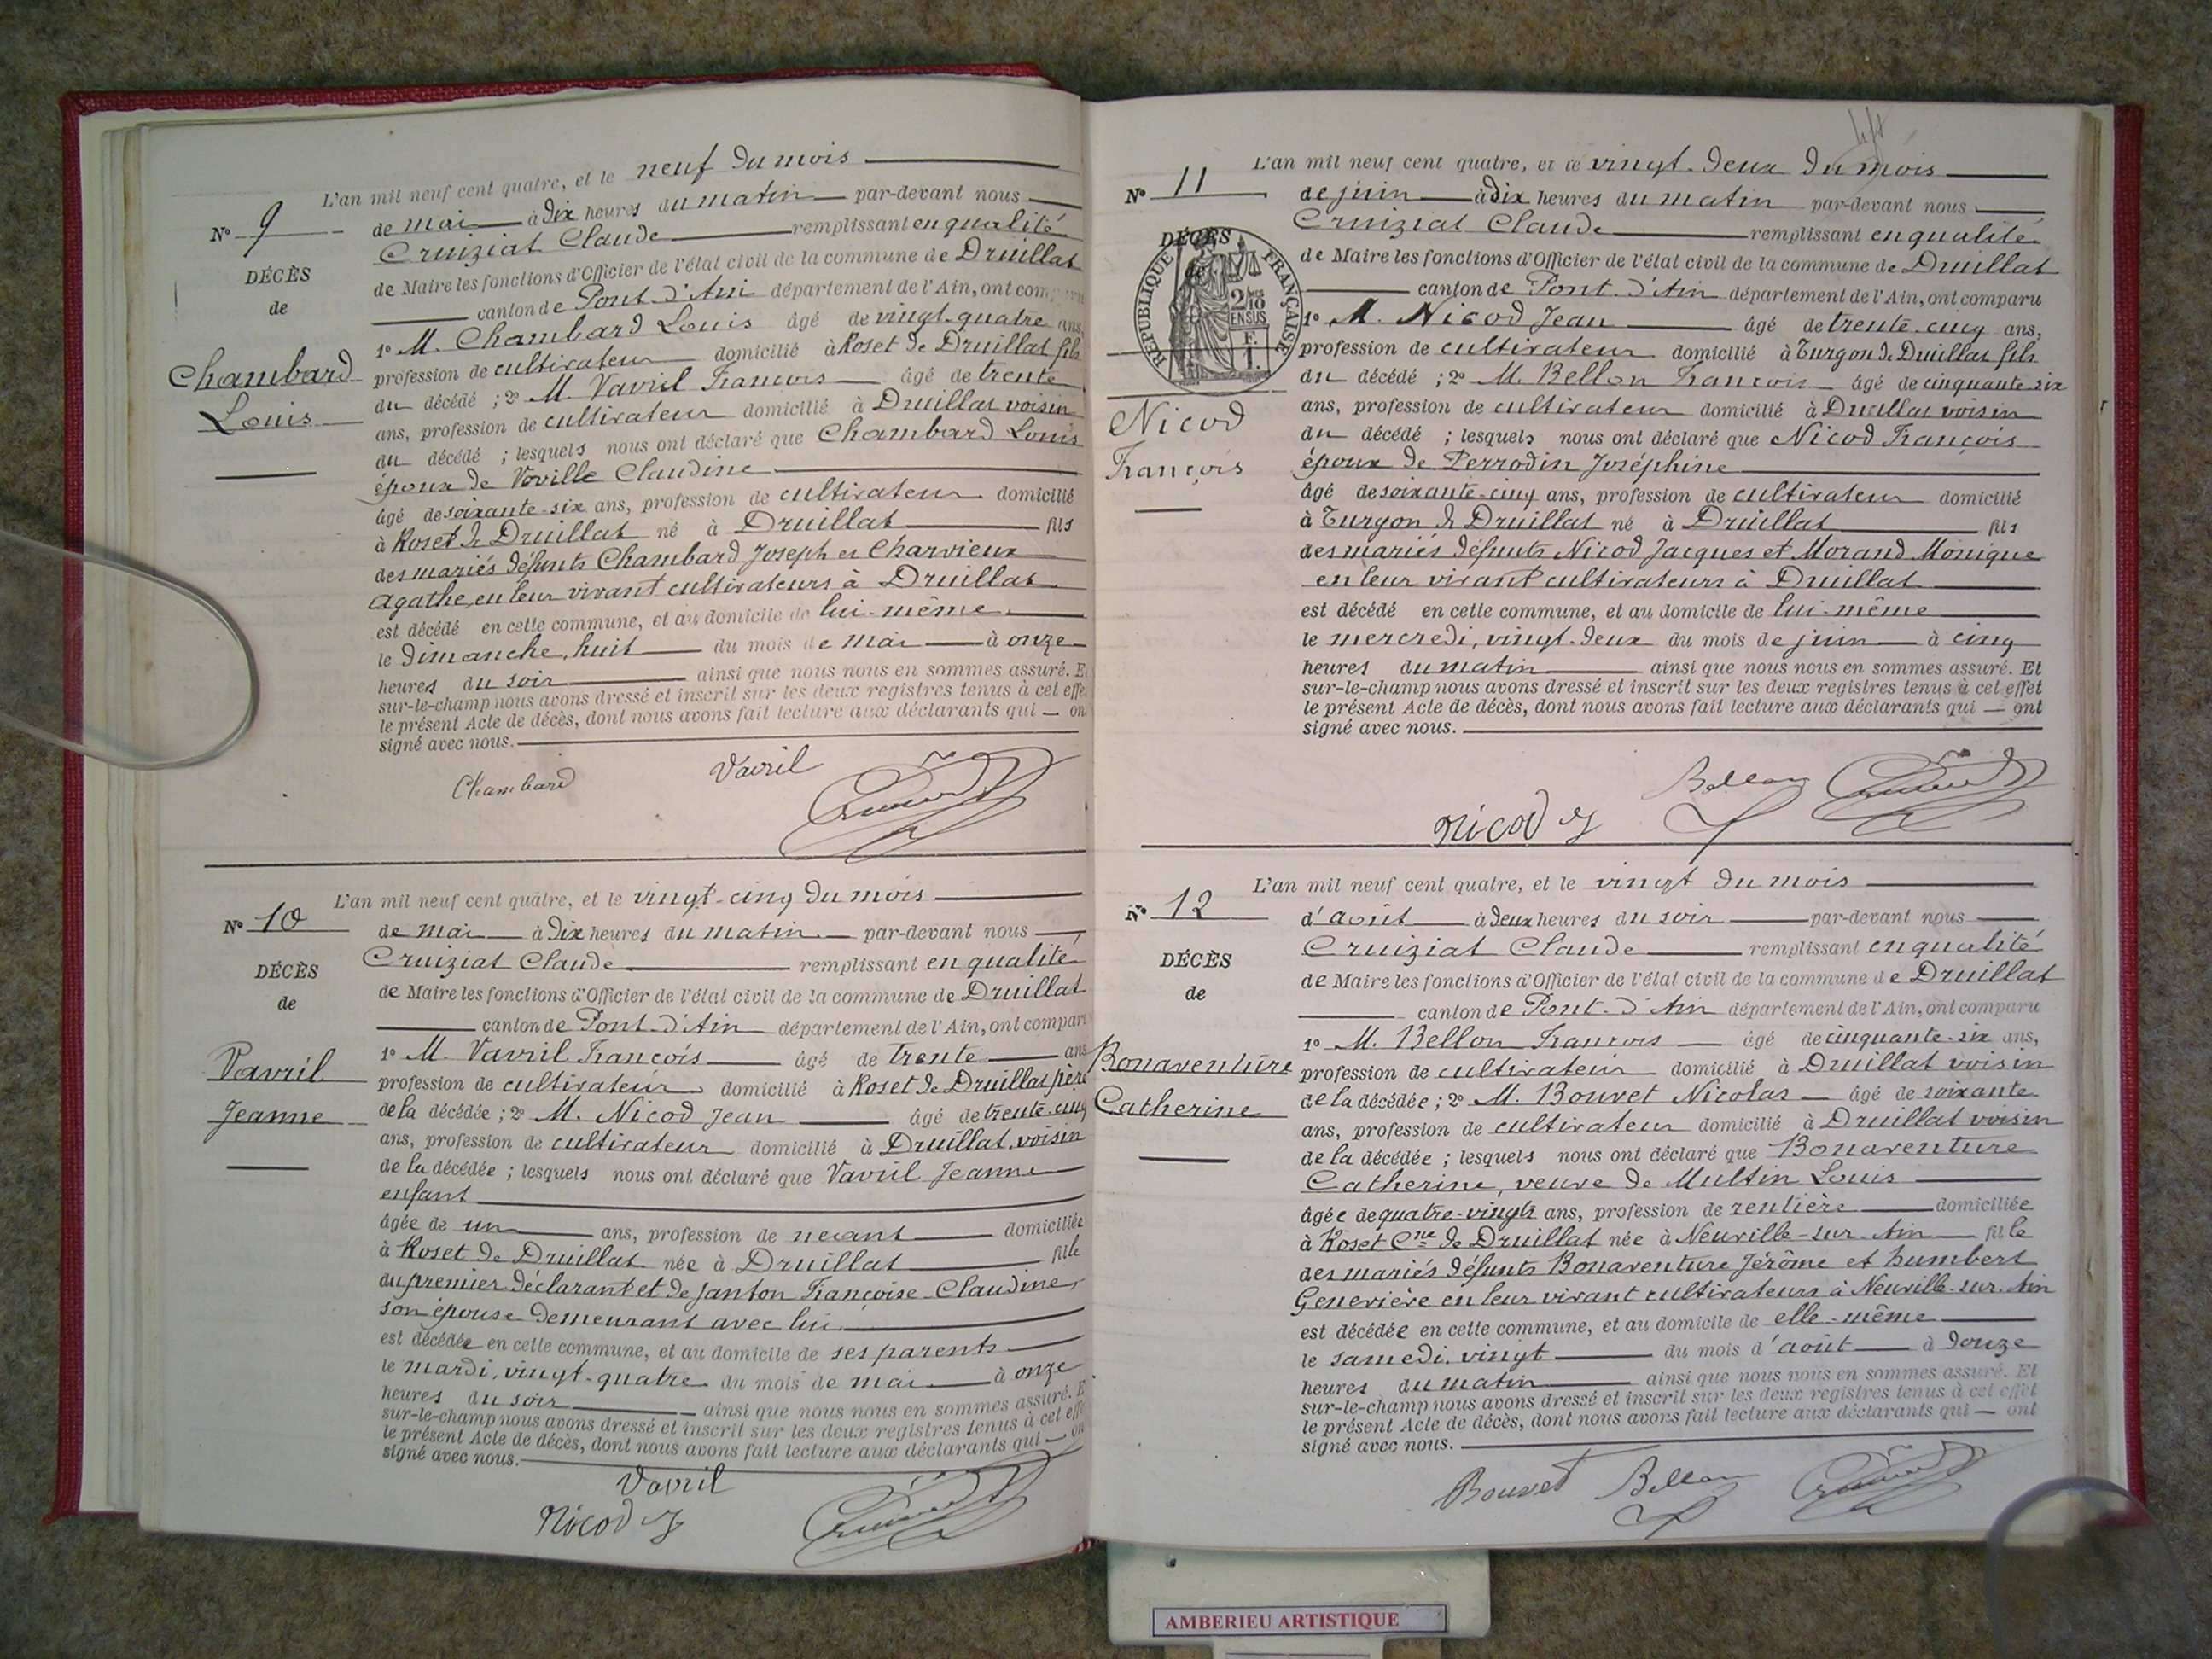 L'an mil neuf cent quatre, et le neuf du mois
N° 9
de mai à dix heures du matin par-devant nous
Cruiziat Claude remplissant en qualité
DÉCÈS
de Maire les fonctions d'Officier de l'état civil de la commune de Druillat
de
canton de Pont-d'Ain département de l'Ain, ont comparu
1° M. Chambard Louis âgé de vingt-quatre ans,
Chambard
Louis
profession de cultivateur domicilié à Roset de Druillat fils
du décédé ; 2° M. Vavril Francois âgé de trente
ans, profession de cultivateur domicilié à Druillat voisin
du décédé ; lesquels nous ont déclaré que Chambard Louis
époux de Voville Claudine
âgé de soixante-six ans, profession de cultivateur domicilié
à Roset de Druillat né à Druillat fils
des mariés défunts Chambard Joseph et Charvieux
Agathe, en leur vivant cultivateurs à Druillat
est décédé en cette commune, et au domicile de lui-même
le dimanche, huit du mois de mai à onze
heures du soir ainsi que nous nous en sommes assuré. Et
sur-le-champ nous avons dressé et inscrit sur les deux registres tenus à cet effe
le présent Acte de décès, dont nous avons fait lecture aux déclarants qui — on
signé avec nous.
Chambard Vavril
L'an mil neuf cent quatre, et le vingt-cinq du mois
N° 10
de mai à dix heures du matin par-devant nous
Cruiziat Claude remplissant en qualité
DÉCÈS
de Maire les fonctions d'Officier de l'état civil de la commune de Druillat
de
canton de Pont-d'Ain département de l'Ain, ont compar
1° M. Vavril Francois âgé de trente ans
Vavril
Jeanne
profession de cultivateur domicilié à Roset de Druillat père
de la décédée ; 2° M. Nicod Jean âgé de trente-cinq
ans, profession de cultivateur domicilié à Druillat, voisin
de la décédée ; lesquels nous ont déclaré que Vavril Jeanne
enfant
âgée de un ans, profession de neant domiciliée
à Roset de Druillat née à Druillat fille
du premier déclarant et de Janton Françoise-Claudine,
son épouse demeurant avec lui
est décédée en cette commune, et au domicile de ses parents
le mardi, vingt-quatre du mois de mai à onze
heures du soir ainsi que nous nous en sommes assuré. E
sur-le-champ nous avons dressé et inscrit sur les deux registres tenus à cet effe
le présent Acte de décès, dont nous avons fait lecture aux déclarants qui — on
signé avec nous.
Vavril
Nicod
L'an mil neuf cent quatre, et le vingt-deux du mois
N° 11
de juin à dix heures du matin par-devant nous
Cruiziat Claude remplissant en qualité
DÉCÈS
RÉPUBLIQUE FRANÇAISE
de Maire les fonctions d'Officier de l'état civil de la commune de Druillat
canton de Pont-d'Ain département de l'Ain, ont comparu
1° M. Nicod Jean âgé de trente-cinq ans,
profession de cultivateur domicilié à Turgon de Druillat fils
du décédé ; 2° M. Bellon Francois âgé de cinquante-six
Nicod
François
ans, profession de cultivateur domicilié à Druillat voisin
du décédé ; lesquels nous ont déclaré que Nicod François
époux de Perrodin Joséphine
âgé de soixante-cinq ans, profession de cultivateur domicilié
à Turgon de Druillat né à Druillat fils
des mariés défunts Nicod Jacques et Morand Monique
en leur vivant cultivateurs à Druillat
est décédé en cette commune, et au domicile de lui-même
le mercredi, vingt-deux du mois de juin à cinq
heures du matin ainsi que nous nous en sommes assuré. Et
sur-le-champ nous avons dressé et inscrit sur les deux registres tenus à cet effet
le présent Acte de décès, dont nous avons fait lecture aux déclarants qui — ont
signé avec nous.
Bellon
Nicod
L'an mil neuf cent quatre, et le vingt du mois
N° 12
d'août à deux heures du soir par-devant nous
Cruiziat Claude remplissant en qualité
DÉCÈS
de Maire les fonctions d'Officier de l'état civil de la commune de Druillat
de
canton de Pont-d'Ain département de l'Ain, ont comparu
1° M. Bellon Francois âgé de cinquante-six ans,
Bonaventure
Catherine
profession de cultivateur domicilié à Druillat voisin
de la décédée ; 2° M. Bouvet Nicolas âgé de soixante
ans, profession de cultivateur domicilié à Druillat voisin
de la décédée ; lesquels nous ont déclaré que Bonaventure
Catherine, veuve de Multin Louis
âgée de quatre-vingts ans, profession de rentière domiciliée
à Roset Cne de Druillat née à Neuville-sur-Ain fille
des mariés défunts Bonaventure Jérôme et humbert
Geneviève en leur vivant cultivateurs à Neuville-sur-Ain
est décédée en cette commune, et au domicile de elle-même
le samedi, vingt du mois d'août à douze
heures du matin ainsi que nous nous en sommes assuré. Et
sur-le-champ nous avons dressé et inscrit sur les deux registres tenus à cet effet
le présent Acte de décès, dont nous avons fait lecture aux déclarants qui — ont
signé avec nous.
Bouvet Bellon
AMBERIEU ARTISTIQUE